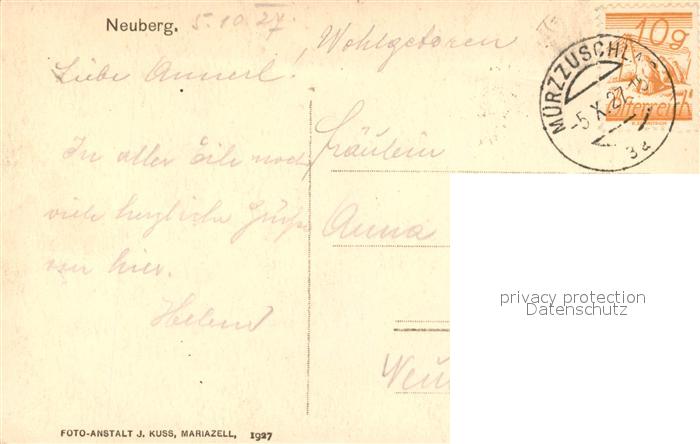 Neuberg. 5.10.27
Liebe Annerl!
In aller Eile noch
viele herzliche Grüße
von hier.
Helene
Wohlgeboren
Fräulein
Anna
10g
Österreich
MÜRZZUSCHLAG
-5.X.27
3a
privacy protection
Datenschutz
FOTO-ANSTALT J. KUSS, MARIAZELL, 1927